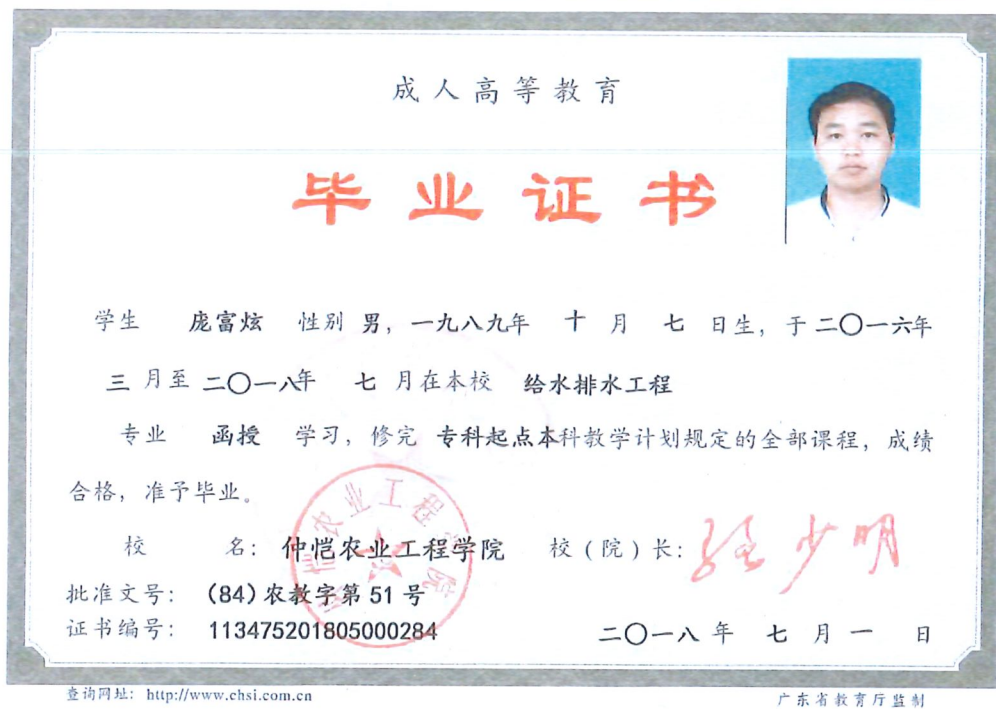 成人高等教育
毕业证书
学生 庞富炫 性别 男，一九八九年 十 月 七 日生，于二〇一六年
三 月至 二〇一八年 七 月在本校 给水排水工程
专业 函授 学习，修完 专科起点本科教学计划规定的全部课程，成绩
合格，准予毕业。
校 名：仲恺农业工程学院 校（院）长：
批准文号：（84）农教字第 51 号
证书编号：113475201805000284 二〇一八 年 七 月 一 日
查询网址：http://www.chsi.com.cn 广东省教育厅监制